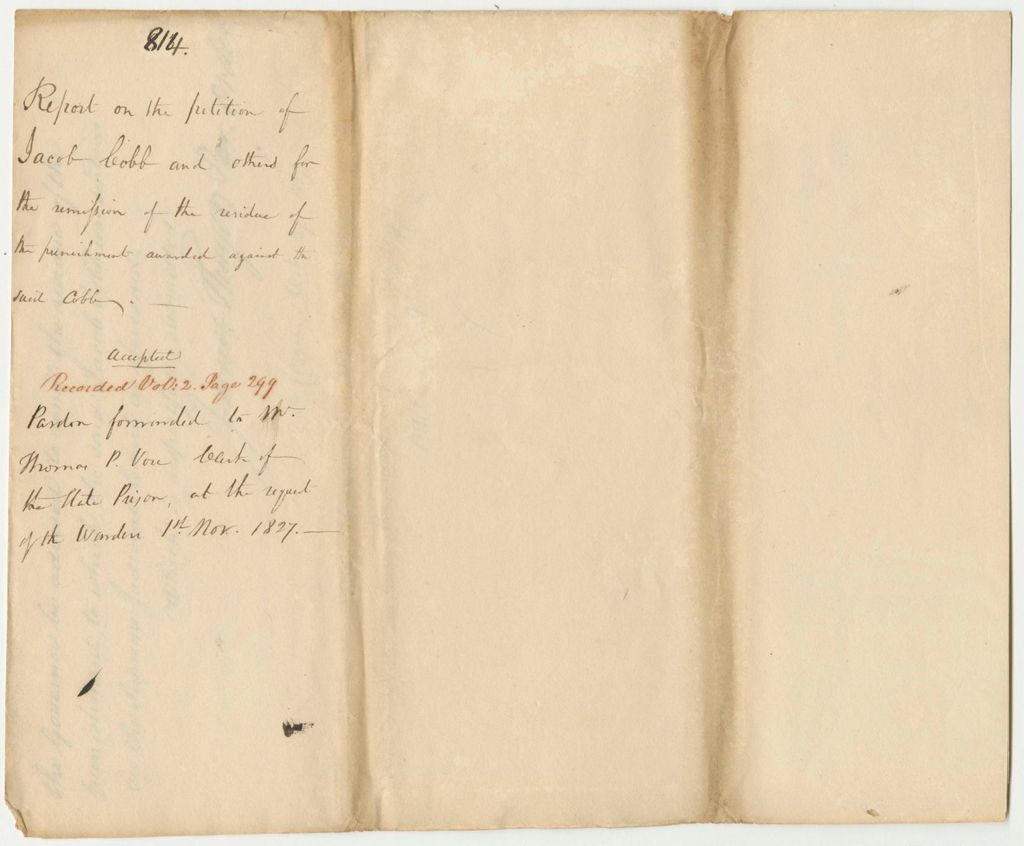 814.
Report on the petition of
Jacob Cobb and others for
the remission of the residue of
the punishment awarded against the
said Cobb. —
Accepted
Recorded Vol: 2. Page 299
Pardon forwarded to Mr.
Thomas P. Vose Clerk of
the State Prison, at the request
of the Warden 1st. Nov. 1827. —